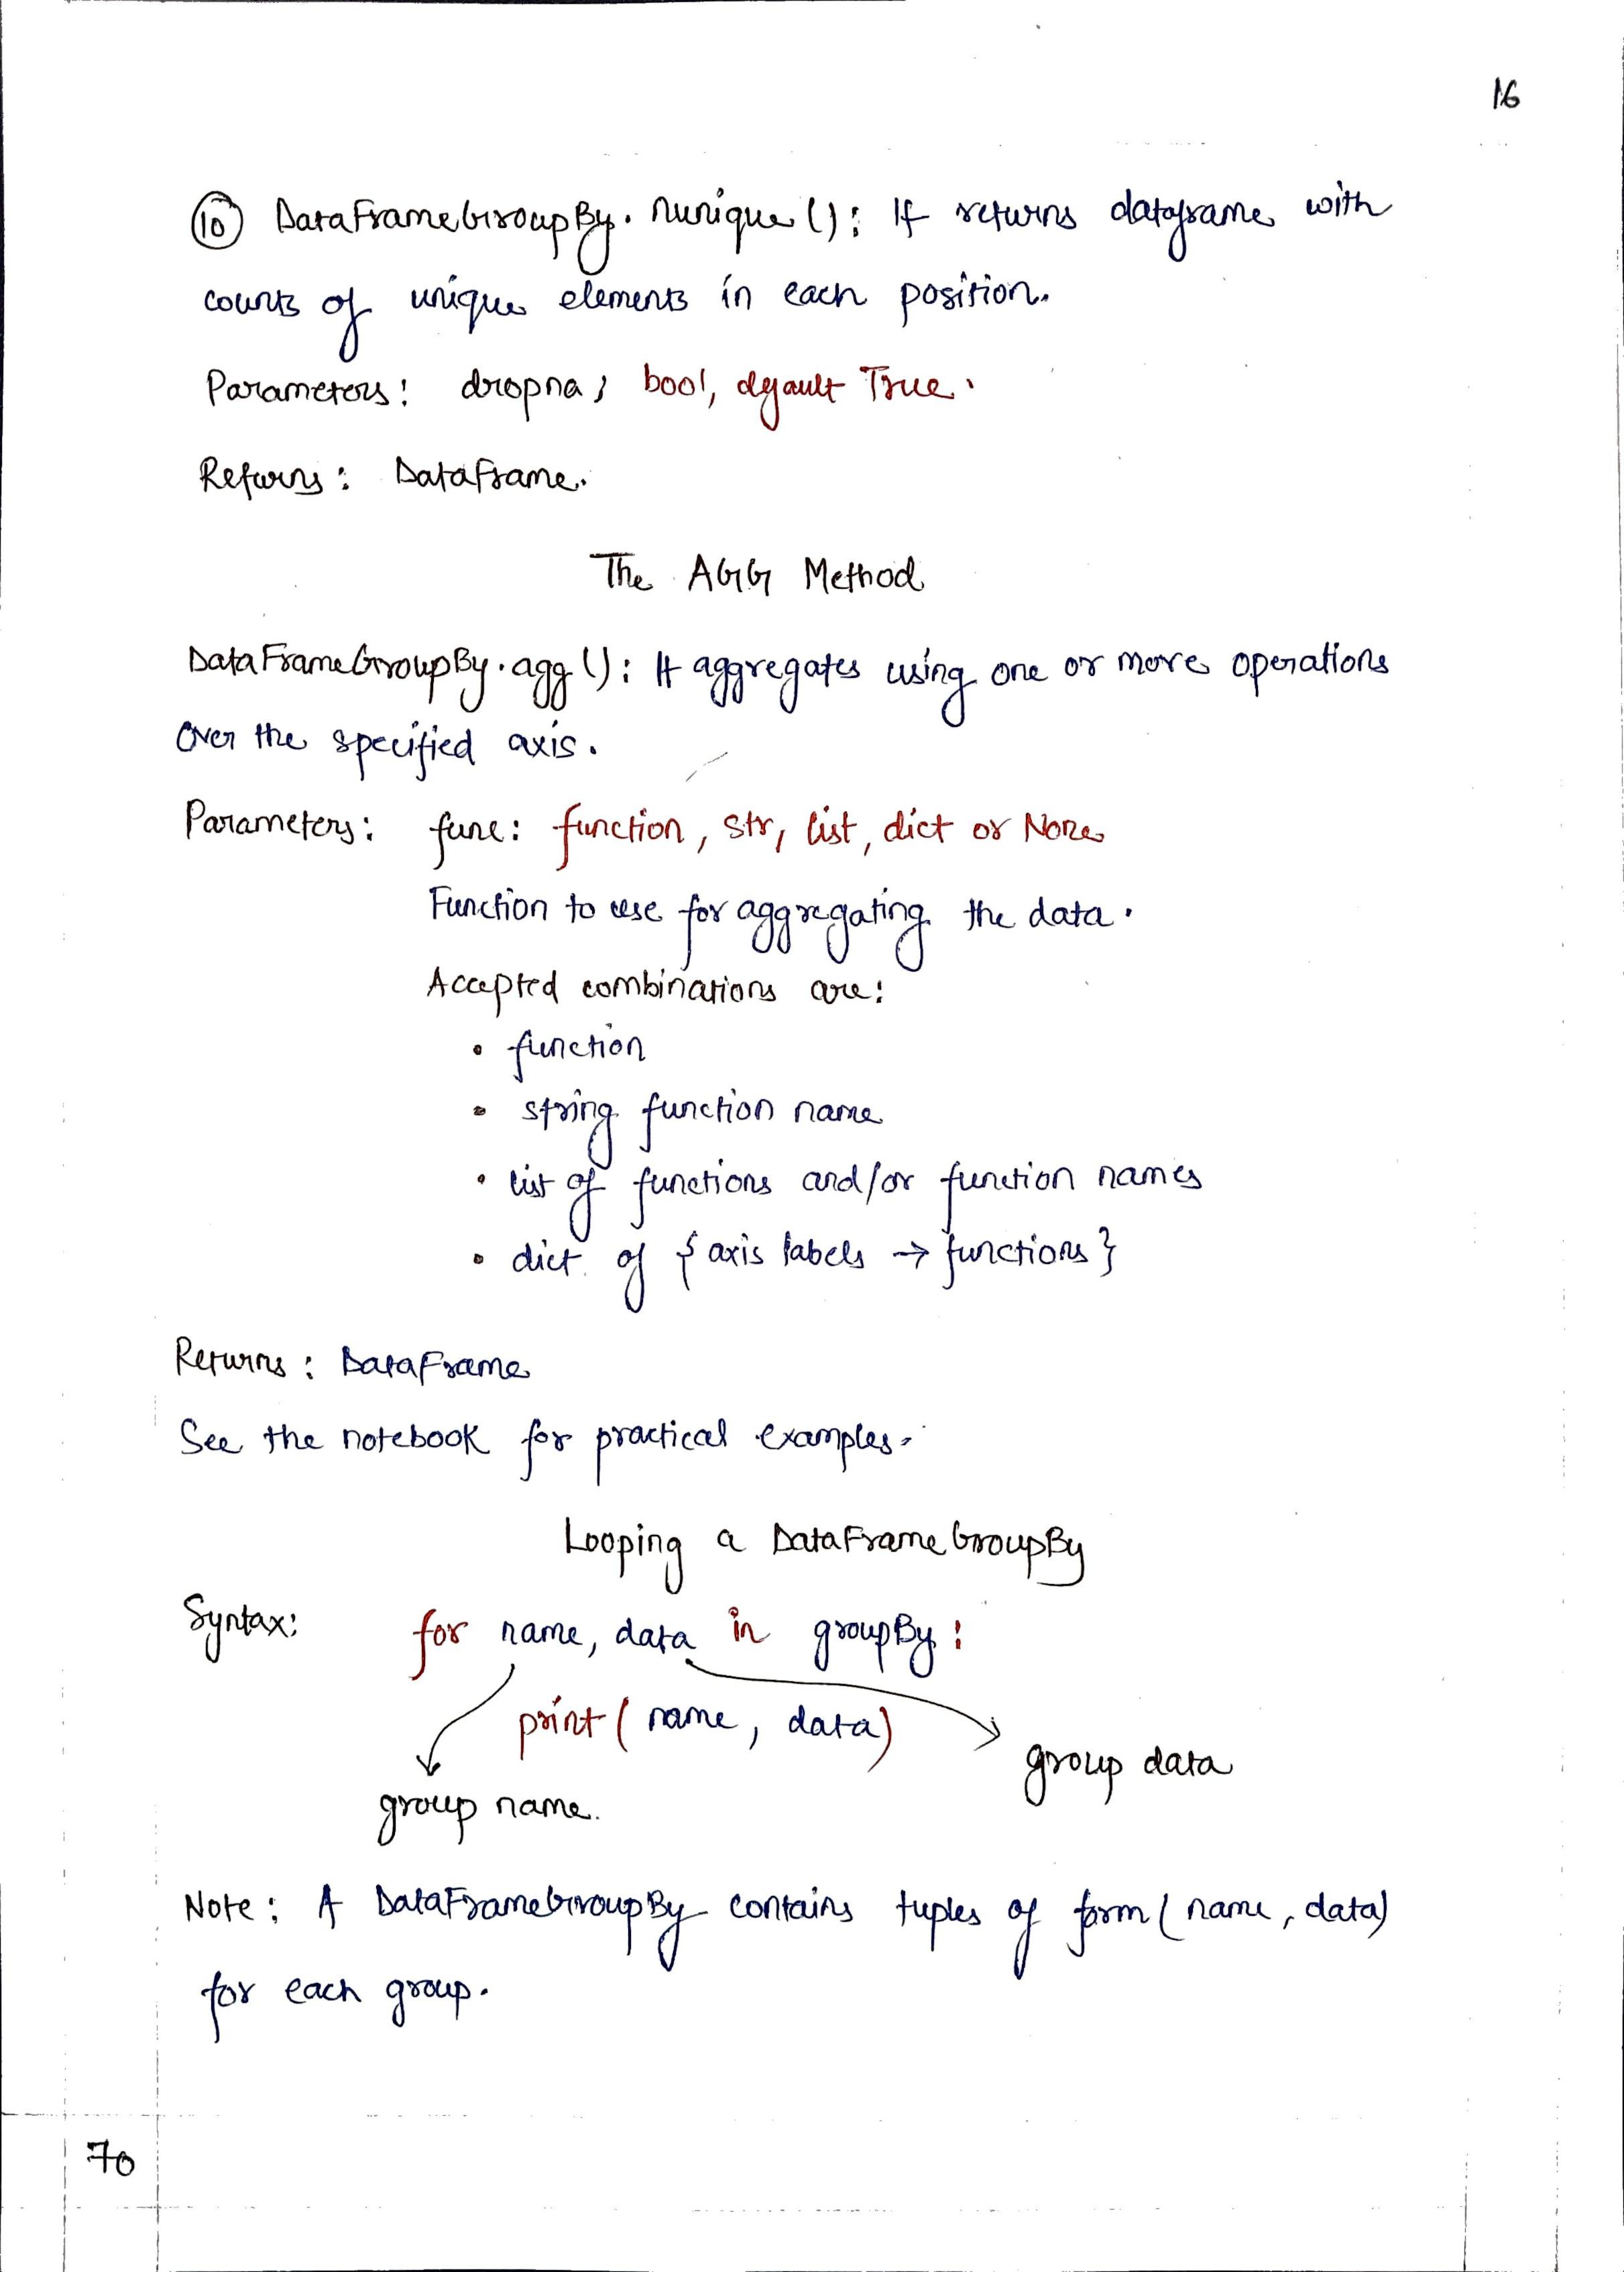 16
⑩ DataFrameGroupBy.nunique(): It returns dataframe with
counts of unique elements in each position.
Parameters: dropna; bool, default True.
Returns: DataFrame.
The AGG Method
DataFrameGroupBy.agg(): It aggregates using one or more operations
over the specified axis.
Parameters: func: function, str, list, dict or None
Function to use for aggregating the data.
Accepted combinations are:
• function
• string function name
• list of functions and/or function names
• dict. of {axis labels → functions}
Returns: DataFrame
See the notebook for practical examples.
Looping a DataFrameGroupBy
Syntax: for name, data in groupBy:
print(name, data)
group data
group name.
Note: A DataFrameGroupBy contains tuples of form (name, data)
for each group.
70